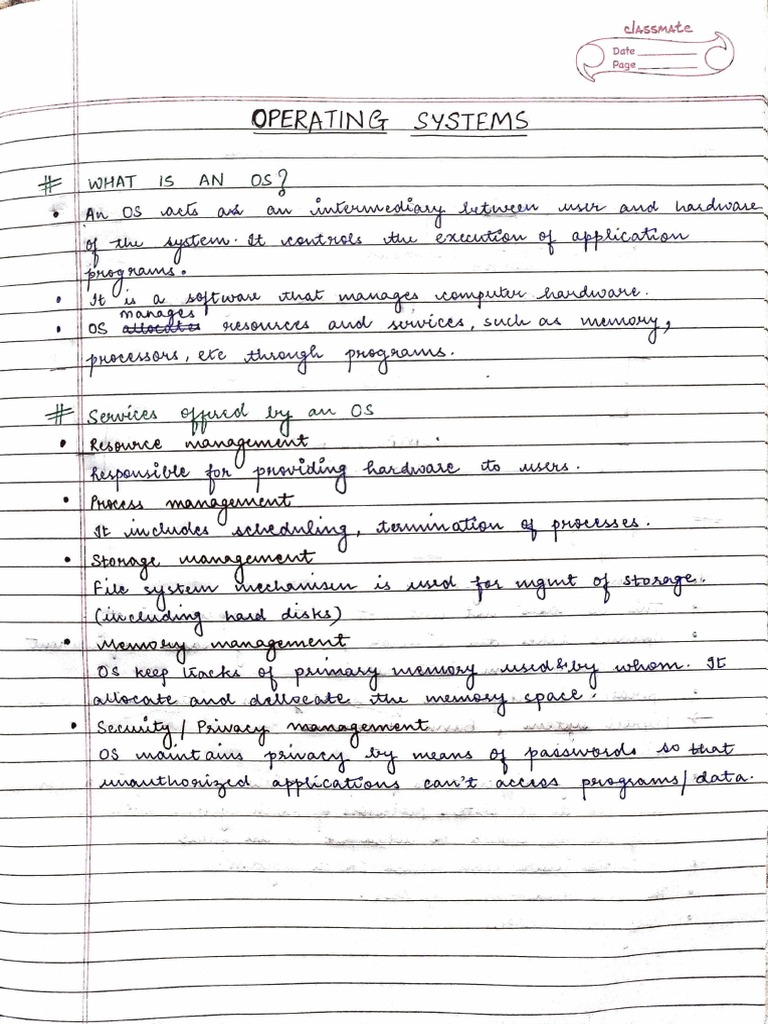 classmate
Date
Page
OPERATING SYSTEMS
# WHAT IS AN OS?
• An OS acts as an intermediary between user and hardware
of the system. It controls the execution of application
programs.
• It is a software that manages computer hardware.
manages
• OS allocates resources and services, such as memory,
processors, etc through programs.
# Services offered by an OS
• Resource management
Responsible for providing hardware to users.
• Process management
It includes scheduling, termination of processes.
• Storage management
File system mechanism is used for mgmt of storage.
(including hard disks)
• Memory management
OS keep tracks of primary memory used & by whom. It
allocate and dellocate the memory space.
• Security / Privacy management
OS maintains privacy by means of passwords so that
unauthorized applications can't access programs/data.